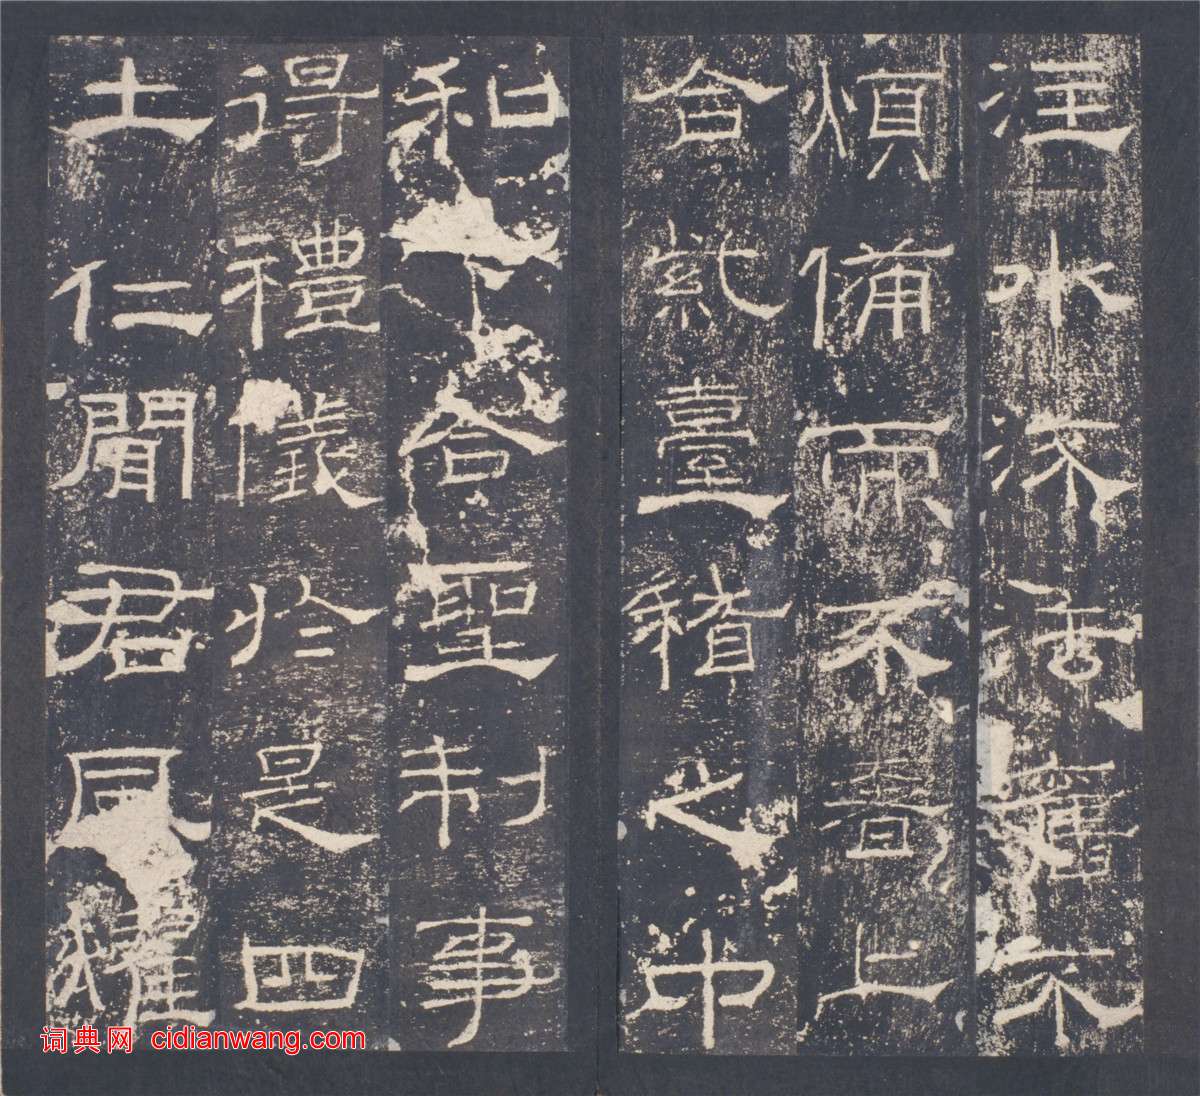 注水流法舊不
煩備而不奢上
合紫臺稽之中
和下合聖制事
得禮儀於是四
土仁聞君風燿
词典网 cidianwang.com